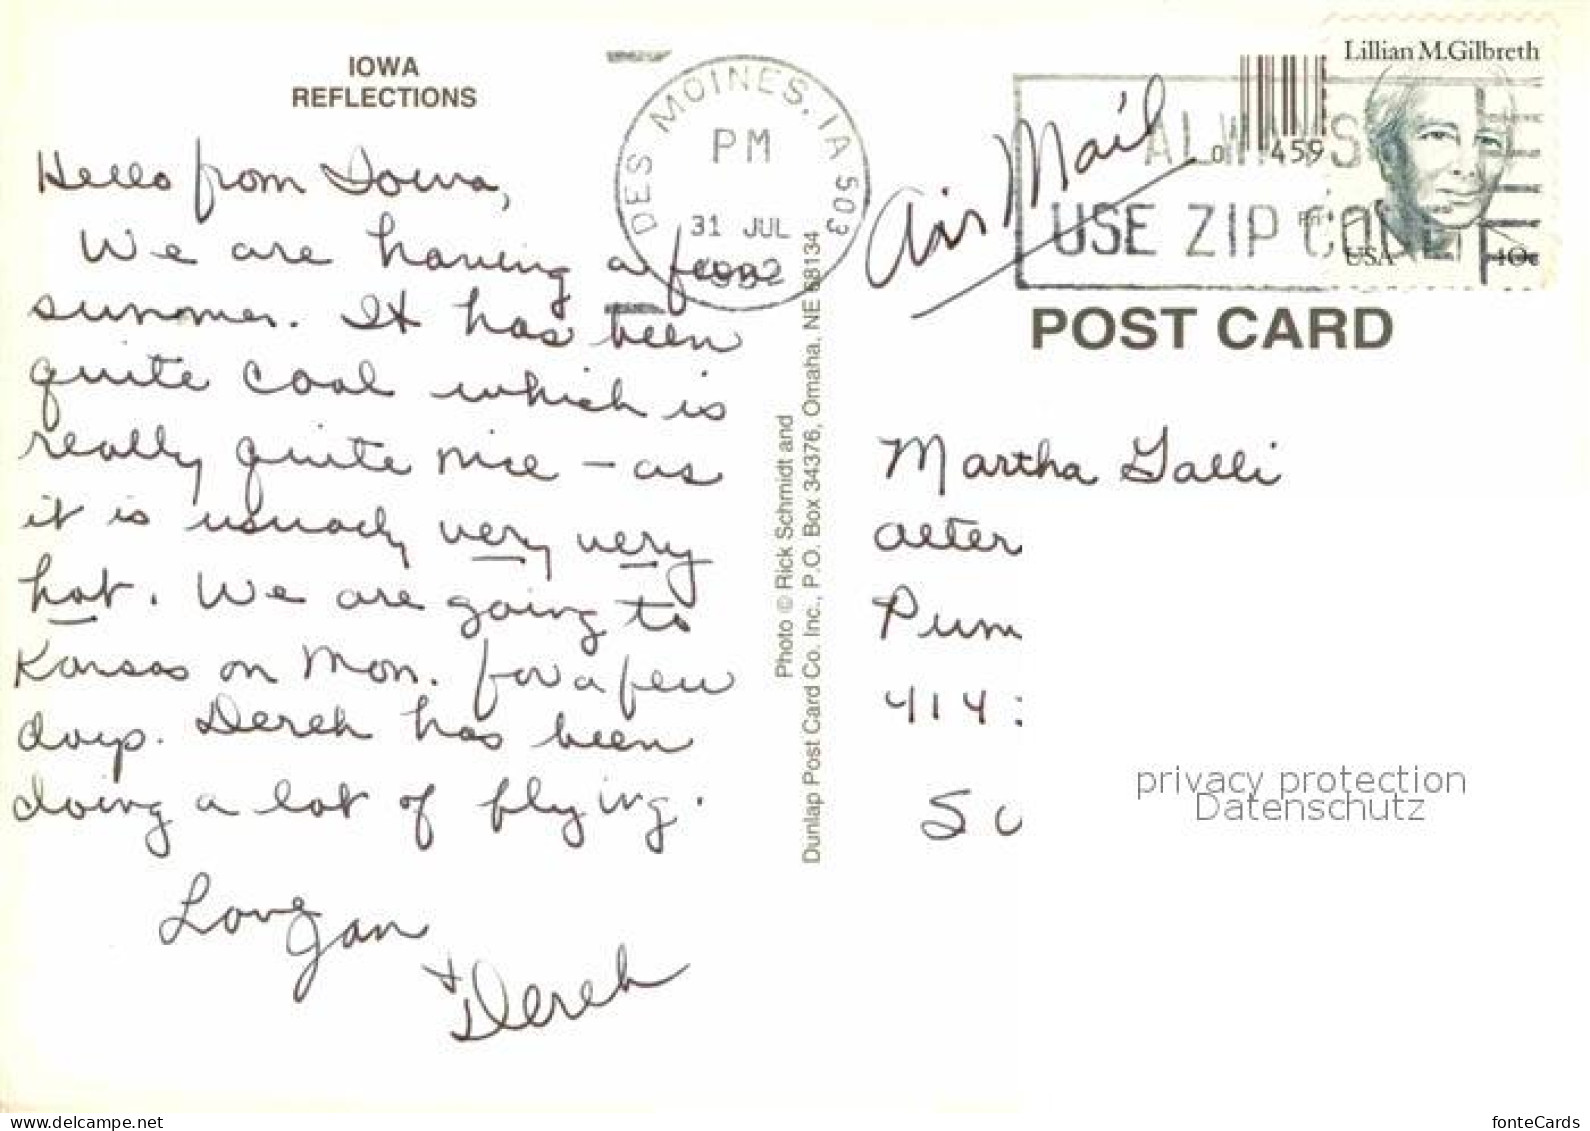 IOWA
REFLECTIONS
Hello from Iowa,
We are having a fun
summer. It has been
quite cool which is
really quite nice - as
it is usually very very
hot. We are going to
Kansas on Mon. for a few
days. Derek has been
doing a lot of flying.
Love Jan
+ Derek
DES MOINES, IA 503
PM
31 JUL
1992
Photo © Rick Schmidt and
Dunlap Post Card Co. Inc., P.O. Box 34376, Omaha, NE 68134
Air Mail
ALWAYS
USE ZIP CODE
0 459
Lillian M. Gilbreth
USA 40c
POST CARD
Martha Galli
Pum
414
privacy protection
Datenschutz
www.ansichtskarten-center.de
fonteCards